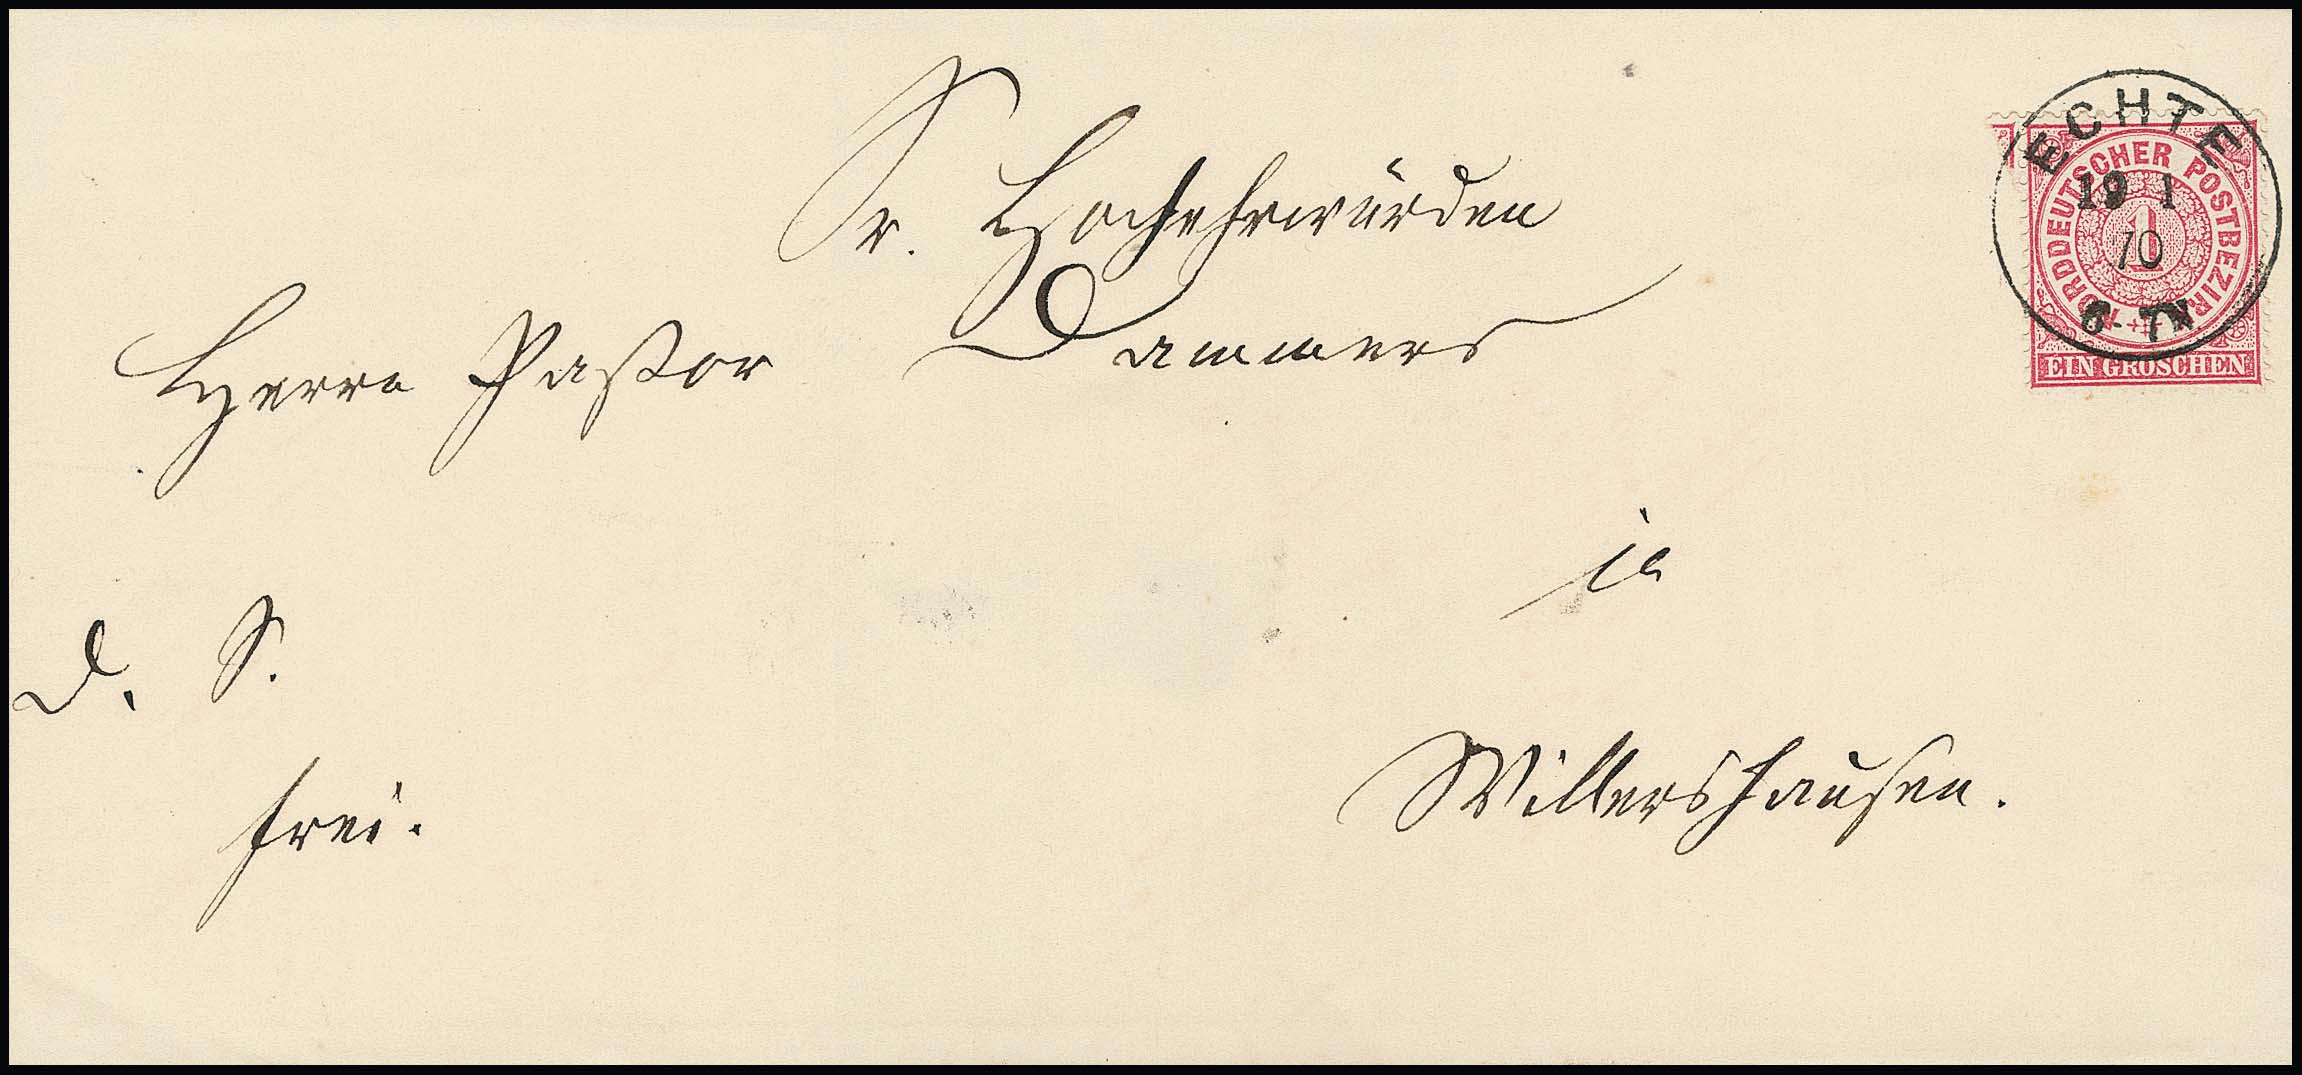 Sr. Hochehrwürden
Herrn Pastor Dammers
in
D. S.
Willershausen.
frei.
ECHTE
19 1
70
6-7N
NORDDEUTSCHER POSTBEZIRK
1
EIN GROSCHEN